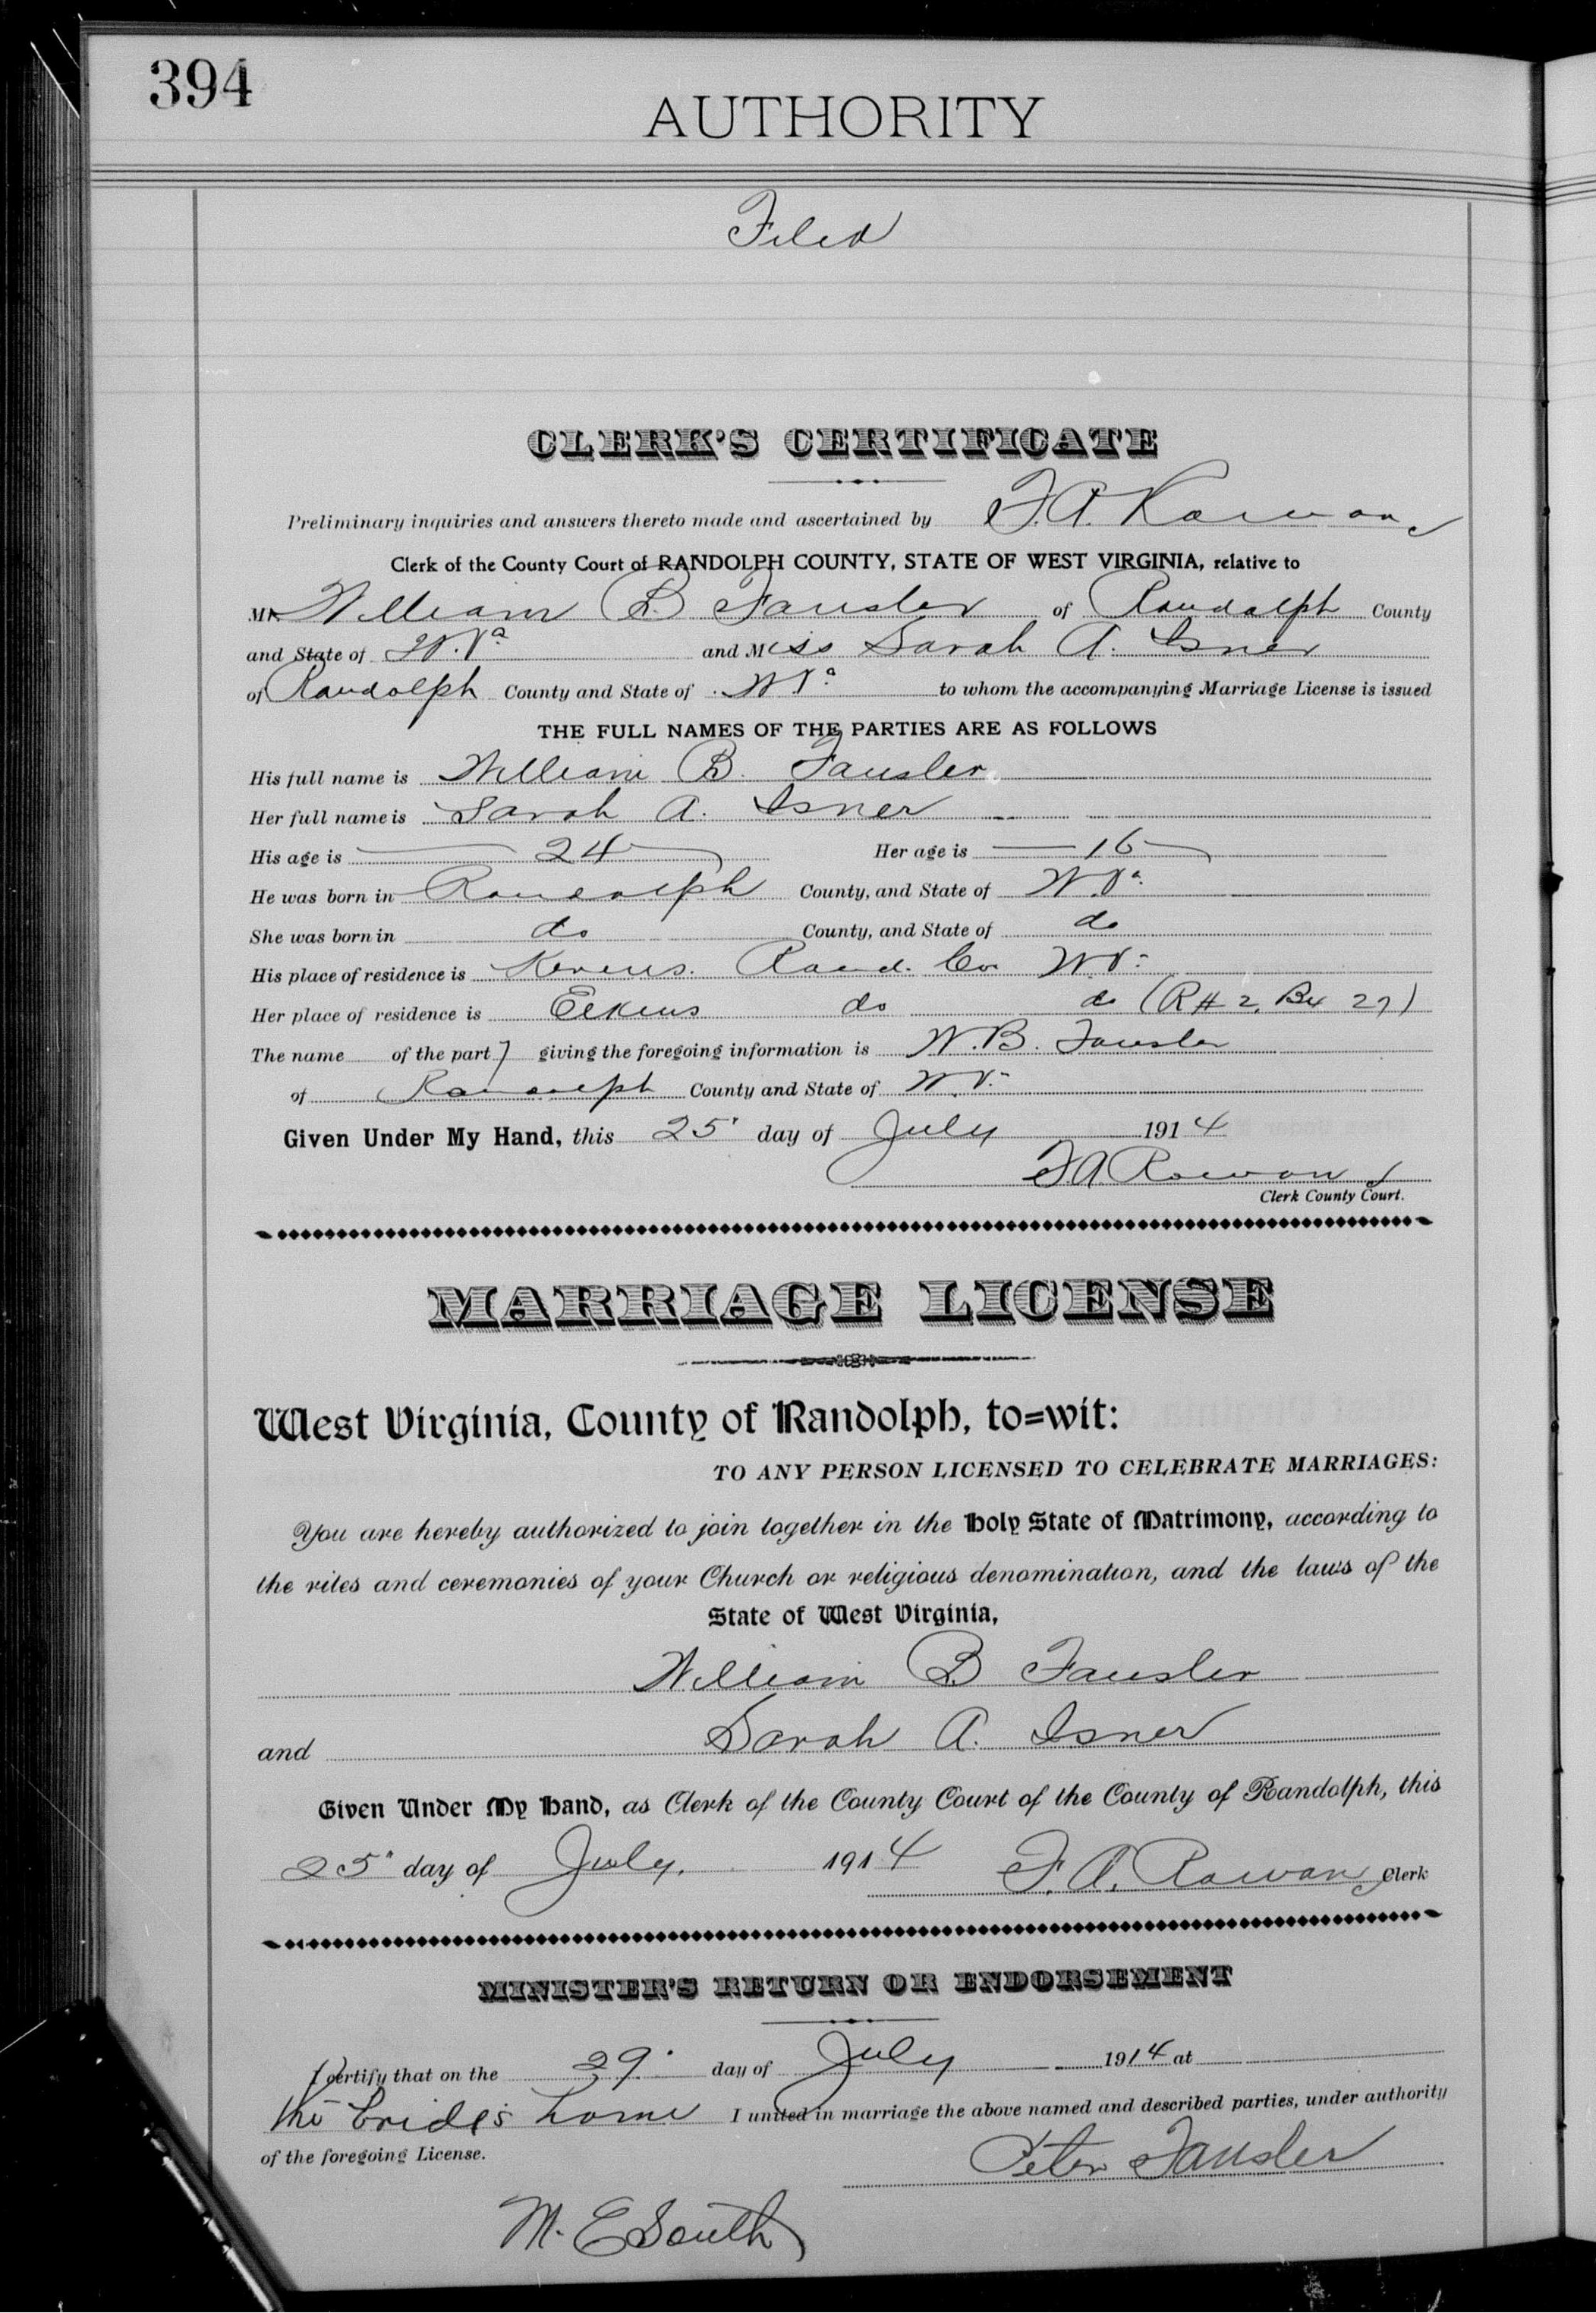 394
AUTHORITY
Filed
CLERK'S CERTIFICATE
Preliminary inquiries and answers thereto made and ascertained by F.A. Rowan
Clerk of the County Court of RANDOLPH COUNTY, STATE OF WEST VIRGINIA, relative to
Mr. William B. Fansler of Randolph County
and State of W. Va and Miss Sarah A. Isner
of Randolph County and State of W Va to whom the accompanying Marriage License is issued
THE FULL NAMES OF THE PARTIES ARE AS FOLLOWS
His full name is William B. Fansler
Her full name is Sarah A. Isner
His age is 24 Her age is 16
He was born in Randolph County, and State of W. Va.
She was born in do County, and State of do
His place of residence is Kerens. Rand. Co W.V.
Her place of residence is Elkins do do (R # 2, Bx 27)
The name of the party giving the foregoing information is W. B. Fansler
of Randolph County and State of W. V.
Given Under My Hand, this 25 day of July 1914
F A Rowan
Clerk County Court.
MARRIAGE LICENSE
West Virginia, County of Randolph, to=wit:
TO ANY PERSON LICENSED TO CELEBRATE MARRIAGES:
You are hereby authorized to join together in the Holy State of Matrimony, according to
the rites and ceremonies of your Church or religious denomination, and the laws of the
State of West Virginia,
William B Fansler
and Sarah A. Isner
Given Under My Hand, as Clerk of the County Court of the County of Randolph, this
25 day of July. 1914 F. A. Rowan Clerk
MINISTER'S RETURN OR ENDORSEMENT
I certify that on the 29 day of July 1914 at
the bride's home I united in marriage the above named and described parties, under authority
of the foregoing License.
Peter Fansler
M. E South